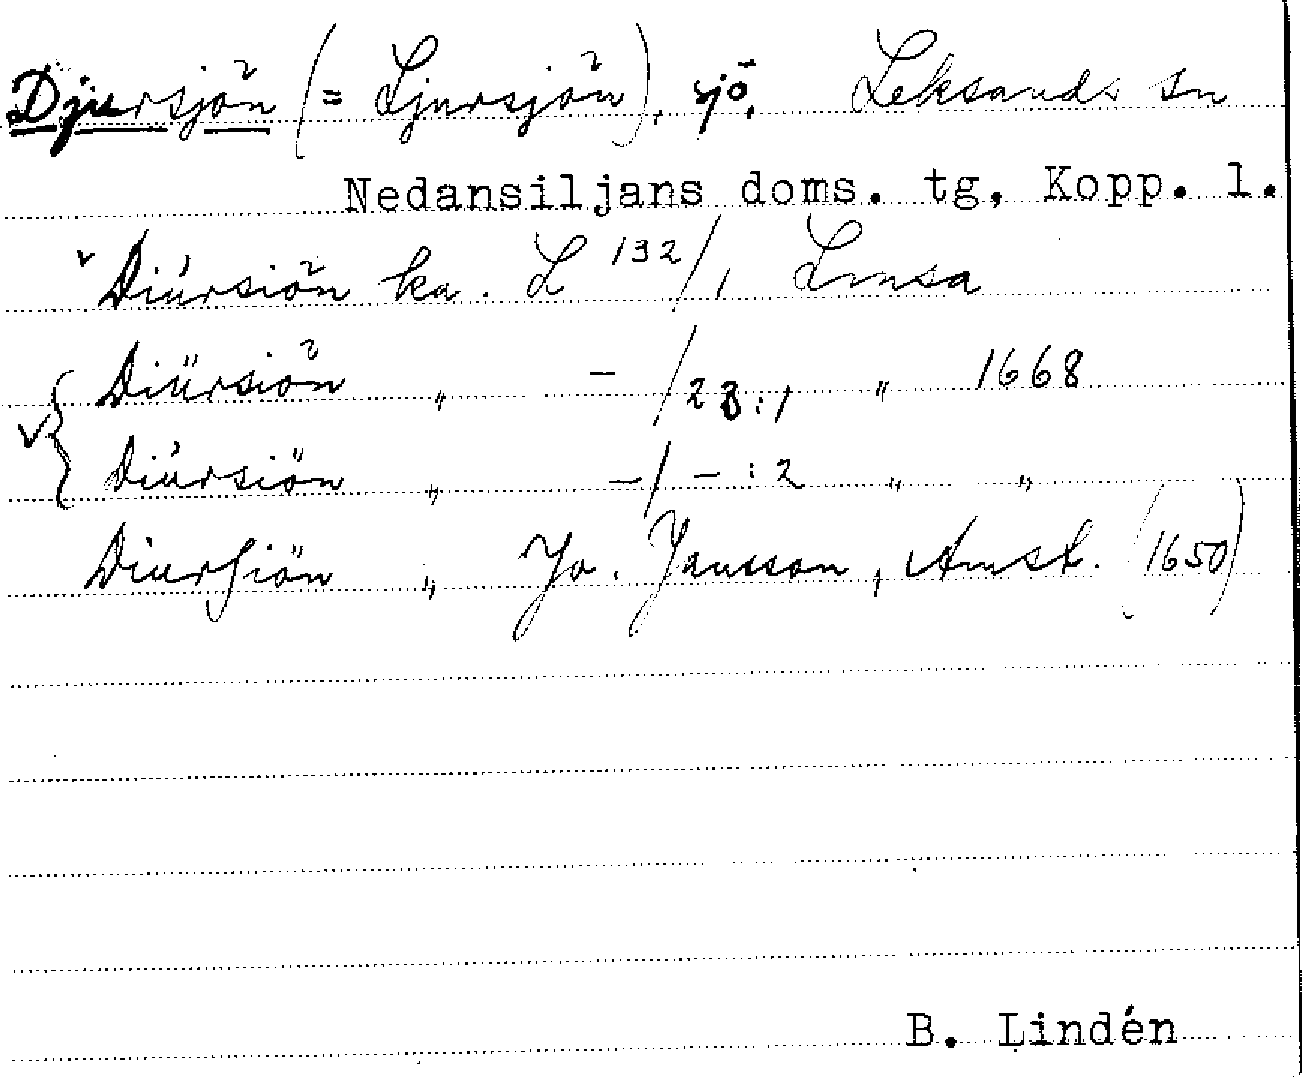 Djursjön (= Ljursjön), sjö. Leksands sn
Nedansiljans doms. tg, Kopp. l.
Diúrsiön ka. L 132/1 Lmsa
Diürsiön „ - /23:1 „ 1668
Diúrsiön „ -/-:2 „ „
Diurſiön „ Jo. Jansson, Amst. (1650)
B. Lindén